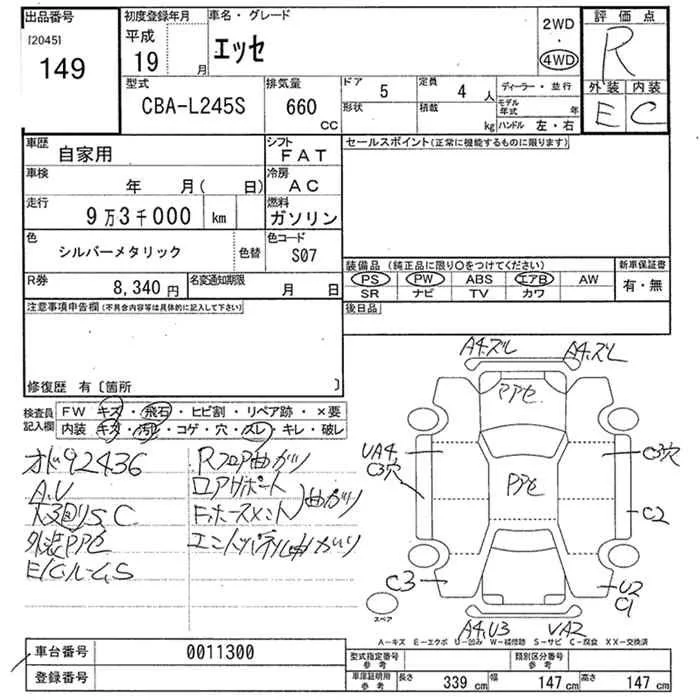 出品番号
[2045]
149
初度登録年月
平成
19 月
車名・グレード
エッセ
2WD
・
4WD
評価点
R
外装 内装
E C
型式
CBA-L245S
排気量
660 CC
ドア 5
定員 4 人
形状
積載 kg
ディーラー・並行
モデル年式 年
ハンドル 左・右
車歴
自家用
シフト
FAT
車検
年 月( 日)
冷房
AC
走行
9万3千000 km
燃料
ガソリン
色
シルバーメタリック
色替
色コード
S07
R券
8,340 円
名変通知期限
月 日
セールスポイント(正常に機能するものに限ります)
装備品(純正品に限り〇をつけてください)
PS PW ABS エアB AW
SR ナビ TV カワ
新車保証書
有・無
後日品
注意事項申告欄(不具合内容等は具体的に記入して下さい)
修復歴 有〔箇所 〕
検査員
記入欄
FW キズ・飛石・ヒビ割・リペア跡・×要
内装 キズ・汚れ・コゲ・穴・スレ・キレ・破レ
92436
A.U
S.C
外装PPセ
Rフロア曲ガリ
ロアサポート
曲ガリ
A4.ズレ
A4.ズレ
PPセ
PPセ
UA4.
C3穴
C3穴
C2
C3
U2
C1
A4.U3
UA2
スペア
A-キズ E-エクボ U-凹み W-補修跡 S-サビ C-腐食 XX-交換済
車台番号
0011300
登録番号
型式指定番号
参考
類別区分番号
参考
車庫証明用
参考
長さ 339 cm
幅 147 cm
高さ 147 cm